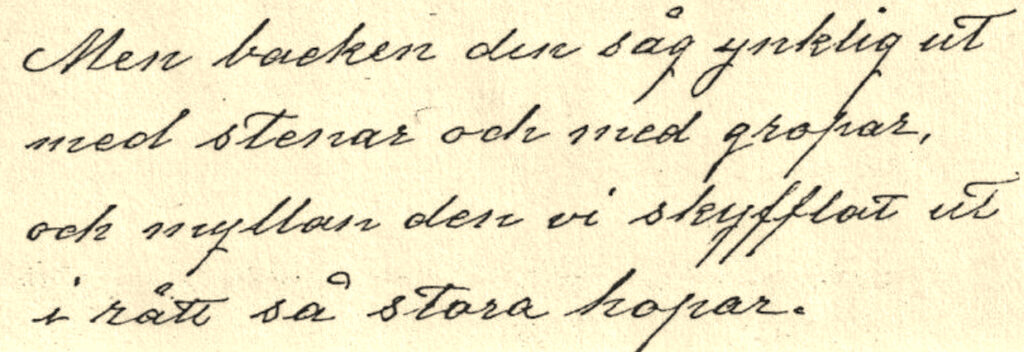 Men backen den såg ynklig ut
med stenar och med gropar,
och myllan den vi skyfflat ut
i rätt så stora hopar.